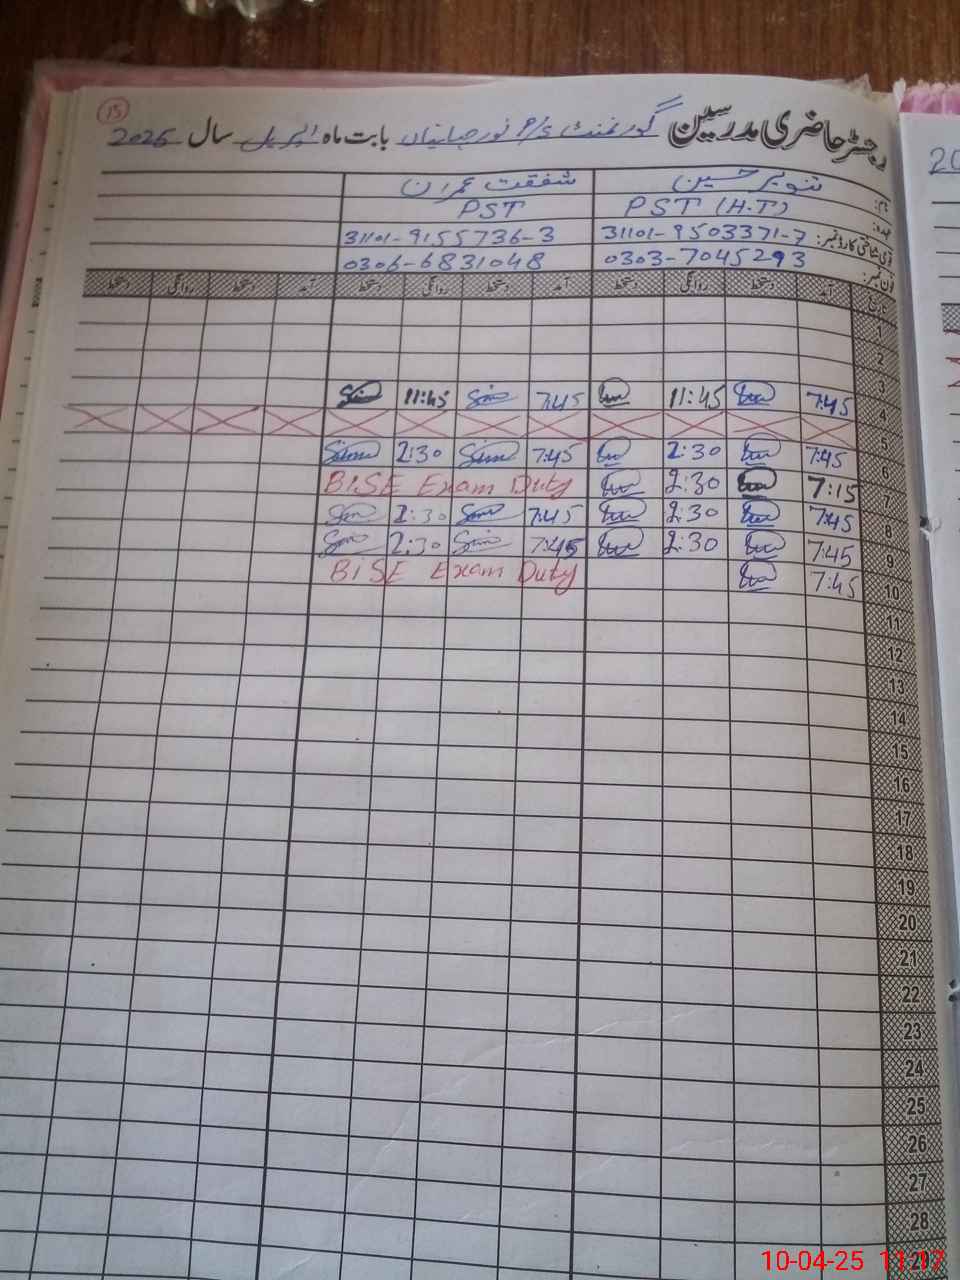 15
رجسٹر حاضری مدرسین گورنمنٹ م/s نور جہانیاں بابت ماہ اپریل سال 2026
نام: تنویر حسین شفقت عمران
عہدہ: PST (H.T) PST
قومی شناختی کارڈ نمبر: 31101-9503371-7 31101-9155736-3
فون نمبر: 0303-7045293 0306-6831048
تاریخ آمد دستخط روانگی دستخط آمد دستخط روانگی دستخط آمد دستخط روانگی دستخط
1
2
3
4 7:45 11:45 7:45 11:45
5
6 7:45 2:30 7:45 2:30
7 7:15 2:30 BISE Exam Duty
8 7:45 2:30 7:45 2:30
9 7:45 2:30 7:45 2:30
10 7:45 BISE Exam Duty
11
12
13
14
15
16
17
18
19
20
21
22
23
24
25
26
27
28
29
10-04-25 11:17
20